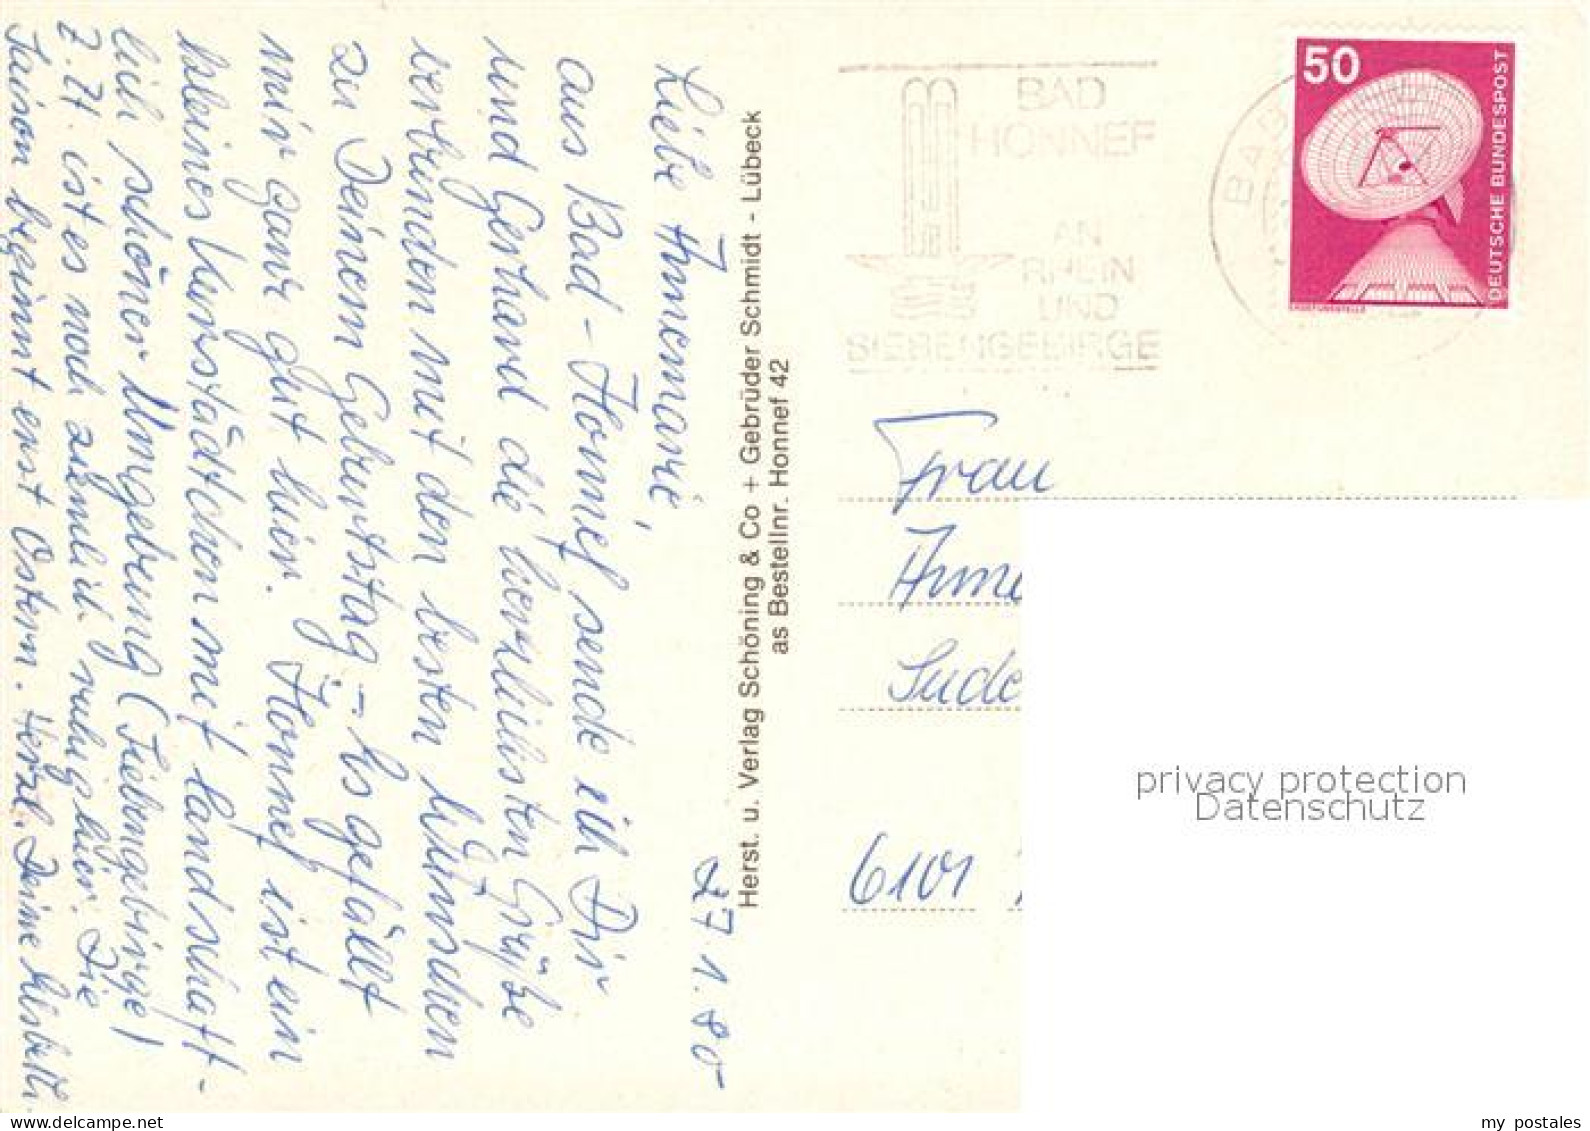 27.1.80
Liebe Annemarie,
aus Bad-Honnef sende ich Dir
und Gerhard die herzlichsten Grüße
verbunden mit den besten Wünschen
zu Deinem Geburtstag. – Es gefällt
mir ganz gut hier. Honnef ist ein
kleines Kurstädtchen mit landschaft-
lich schöner Umgebung (Siebengebirge)
z. Zt. ist es noch ziemlich ruhig hier. Die
Saison beginnt erst Ostern. Herzl. Deine Elsbeth.
Herst. u. Verlag Schöning & Co + Gebrüder Schmidt - Lübeck
as Bestellnr. Honnef 42
BAD
HONNEF
AN
RHEIN
UND
SIEBENGEBIRGE
BAD
50
DEUTSCHE BUNDESPOST
ERDEFUNKSTELLE
Frau
Anne
Sude
6101
privacy protection
Datenschutz
my postales